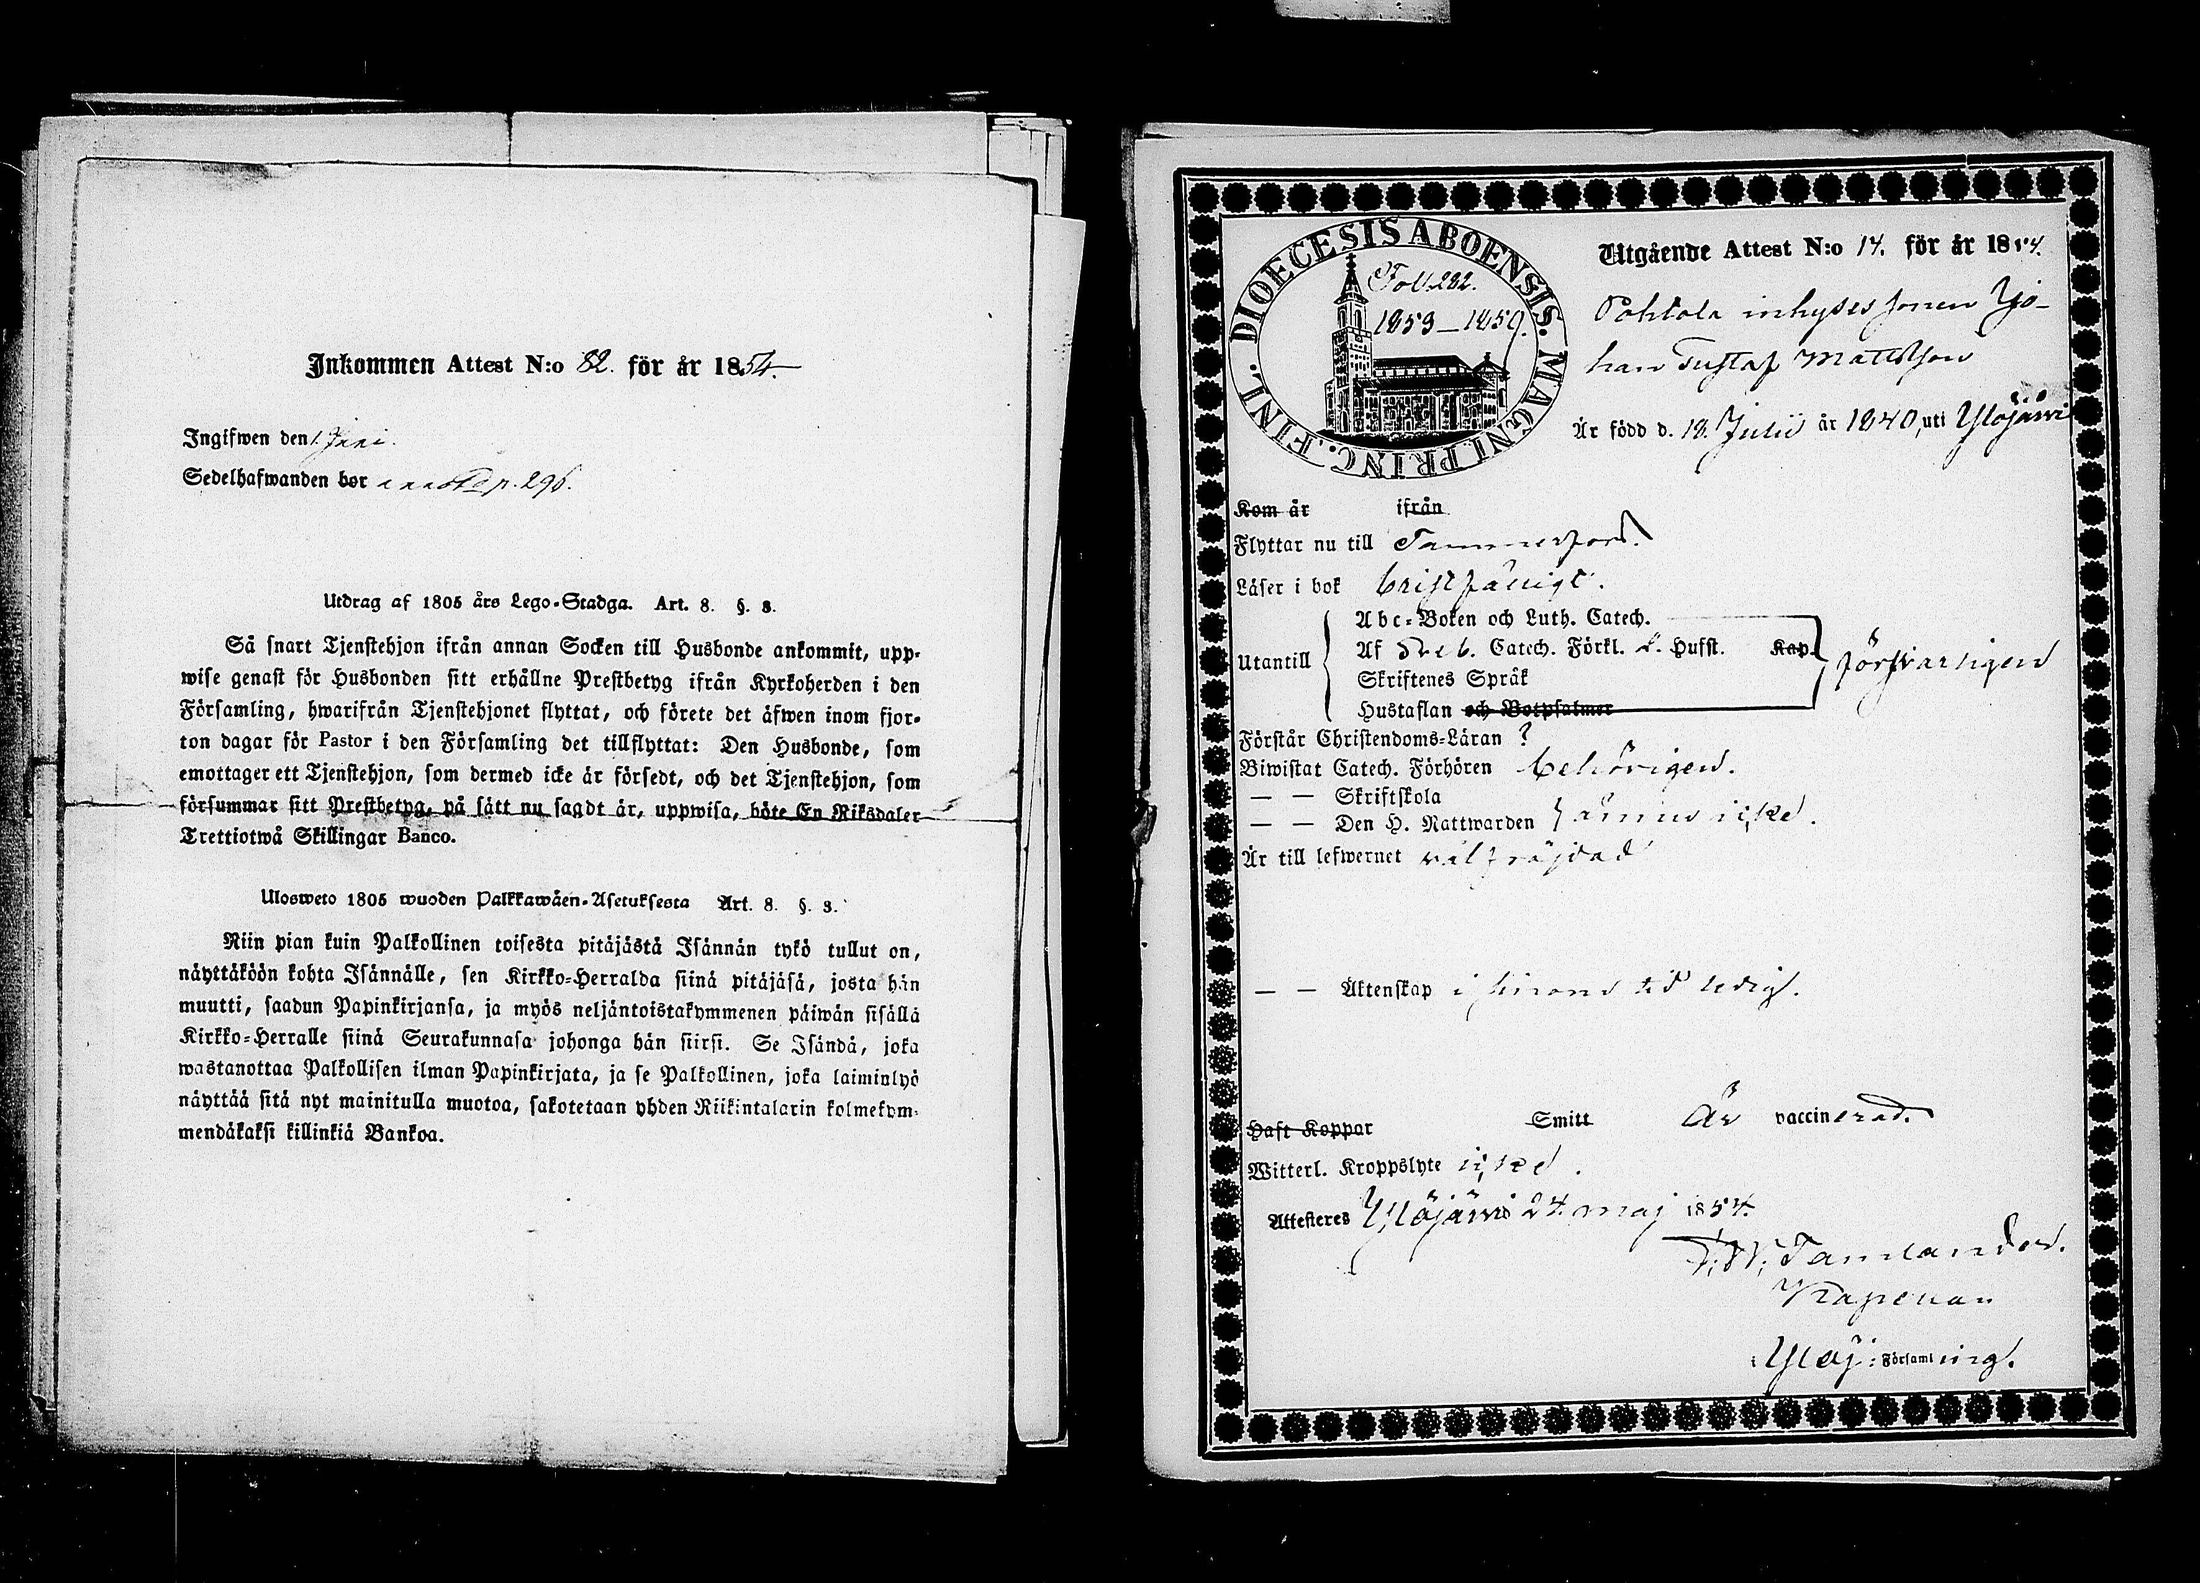 Inkommen Attest N:o 82. för år 1854.
Ingifwen den 1 Juni.
Sedelhafwanden bor p. 296.
Utdrag af 1805 års Lego-Stadga. Art. 8. §. 8.
Så snart Tjenstehjon ifrån annan Socken till Husbonde ankommit, upp-
wise genast för Husbonden sitt erhållne Prestbetyg ifrån Kyrkoherden i den
Församling, hwarifrån Tjenstehjonet flyttat, och förete det äfwen inom fjor-
ton dagar för Pastor i den Församling det tillflyttat: Den Husbonde, som
emottager ett Tjenstehjon, som dermed icke är försedt, och det Tjenstehjon, som
försummar sitt Prestbetyg, på sätt nu sagdt är, uppwisa, böte En Riksdaler
Trettiotwå Skillingar Banco.
Ulosweto 1805 wuoden Palkkawäen-Asetuksesta Art. 8. §. 8.
Niin pian kuin Palkollinen toisesta pitäjästä Isännän tykö tullut on,
näyttäköön kohta Isännälle, sen Kirkko-Herralda siinä pitäjäsä, josta hän
muutti, saadun Papinkirjansa, ja myös neljäntoistakymmenen päiwän sisällä
Kirkko-Herralle siinä Seurakunnasa johonga hän siirsi. Se Isändä, joka
wastanottaa Palkollisen ilman Papinkirjata, ja se Palkollinen, joka laiminlyö
näyttää sitä nyt mainitulla muotoa, sakotetaan yhden Riikintalarin kolmekym-
mendäkaksi killinkiä Bankoa.
DIOECESIS ABOENSIS. MAGNI PRINC. FINL.
Fol. 282.
1853–1859.
Utgående Attest N:o 14. för år 1854.
Pohtola inhyses sonen Jo-
han Gustaf Mattsson
Är född d. 18. Julii år 1840, uti Ylöjärvi
Kom år ifrån
Flyttar nu till Tammerfors.
Läser i bok bristfälligt.
Abc-Boken och Luth. Catech.
Utantill Af Sveb. Catech. Förkl. Hufst. Kap. försvarligen
Skriftenes Språk
Hustaflan och Botpsalmer
Förstår Christendoms-Läran ?
Biwistat Catech. Förhören behörigen.
— — Skriftskola
— — Den H. Nattwarden ännu icke.
Är till lefwernet välfräjdad
— — Äktenskap i hinderd tid ledig.
Haft Koppar Smitt Är vaccinerad.
Witterl. Kroppslyte icke.
Attesteres Ylöjärvi 24. maj 1854.
Tamlander.
Kapellan
i Ylöj: Församling.